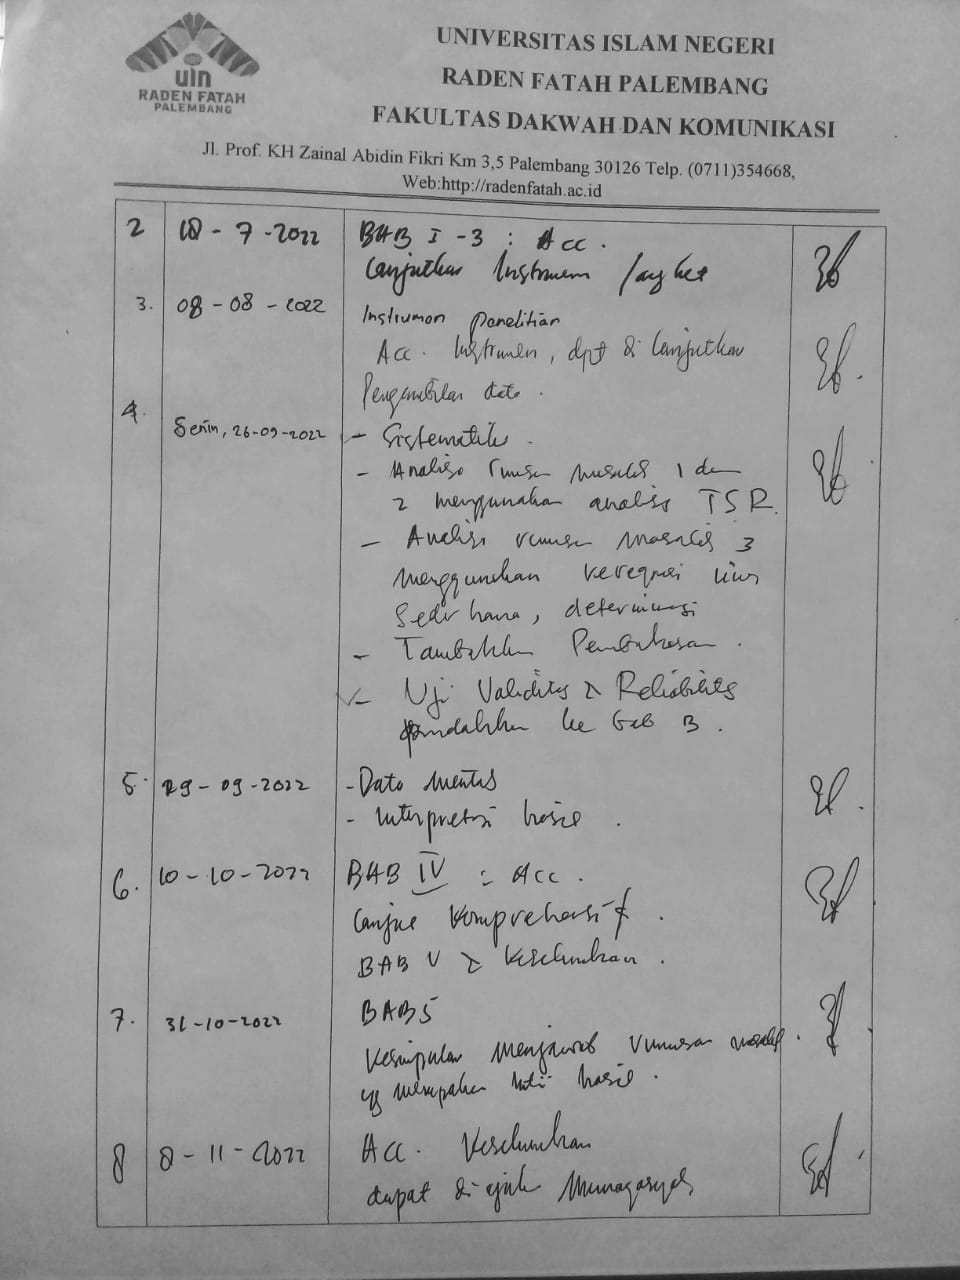 uin
RADEN FATAH
PALEMBANG
UNIVERSITAS ISLAM NEGERI
RADEN FATAH PALEMBANG
FAKULTAS DAKWAH DAN KOMUNIKASI
Jl. Prof. KH Zainal Abidin Fikri Km 3,5 Palembang 30126 Telp. (0711)354668,
Web:http://radenfatah.ac.id
2 18 - 7 - 2022 BAB I - 3 : Acc.
Lanjutkan Instrumen
3. 08 - 08 - 2022 Instrumen penelitian
Acc. Instrumen, dpt di lanjutkan
Pengambilan data.
4. Senin, 26-09-2022 - Sistematika.
- Analisa rumusan masalah 1 dan
2 menggunakan analisis TSR.
- Analisa rumusan masalah 3
menggunakan
sederhana, determinasi
- Tambahkan Pembahasan.
- Uji Validitas & Reliabilitas
pindahkan ke bab 3.
5. 29 - 09 - 2022 - Data mentah
- Interpretasi hasil.
6. 10 - 10 - 2022 BAB IV : Acc.
Lanjut Komprehensif.
BAB V & Keseluruhan.
7. 31-10-2022 BAB 5
Kesimpulan menjawab rumusan masalah.
yg merupakan inti hasil.
8 8 - 11 - 2022 Acc. Keseluruhan
dapat di Munaqasyah